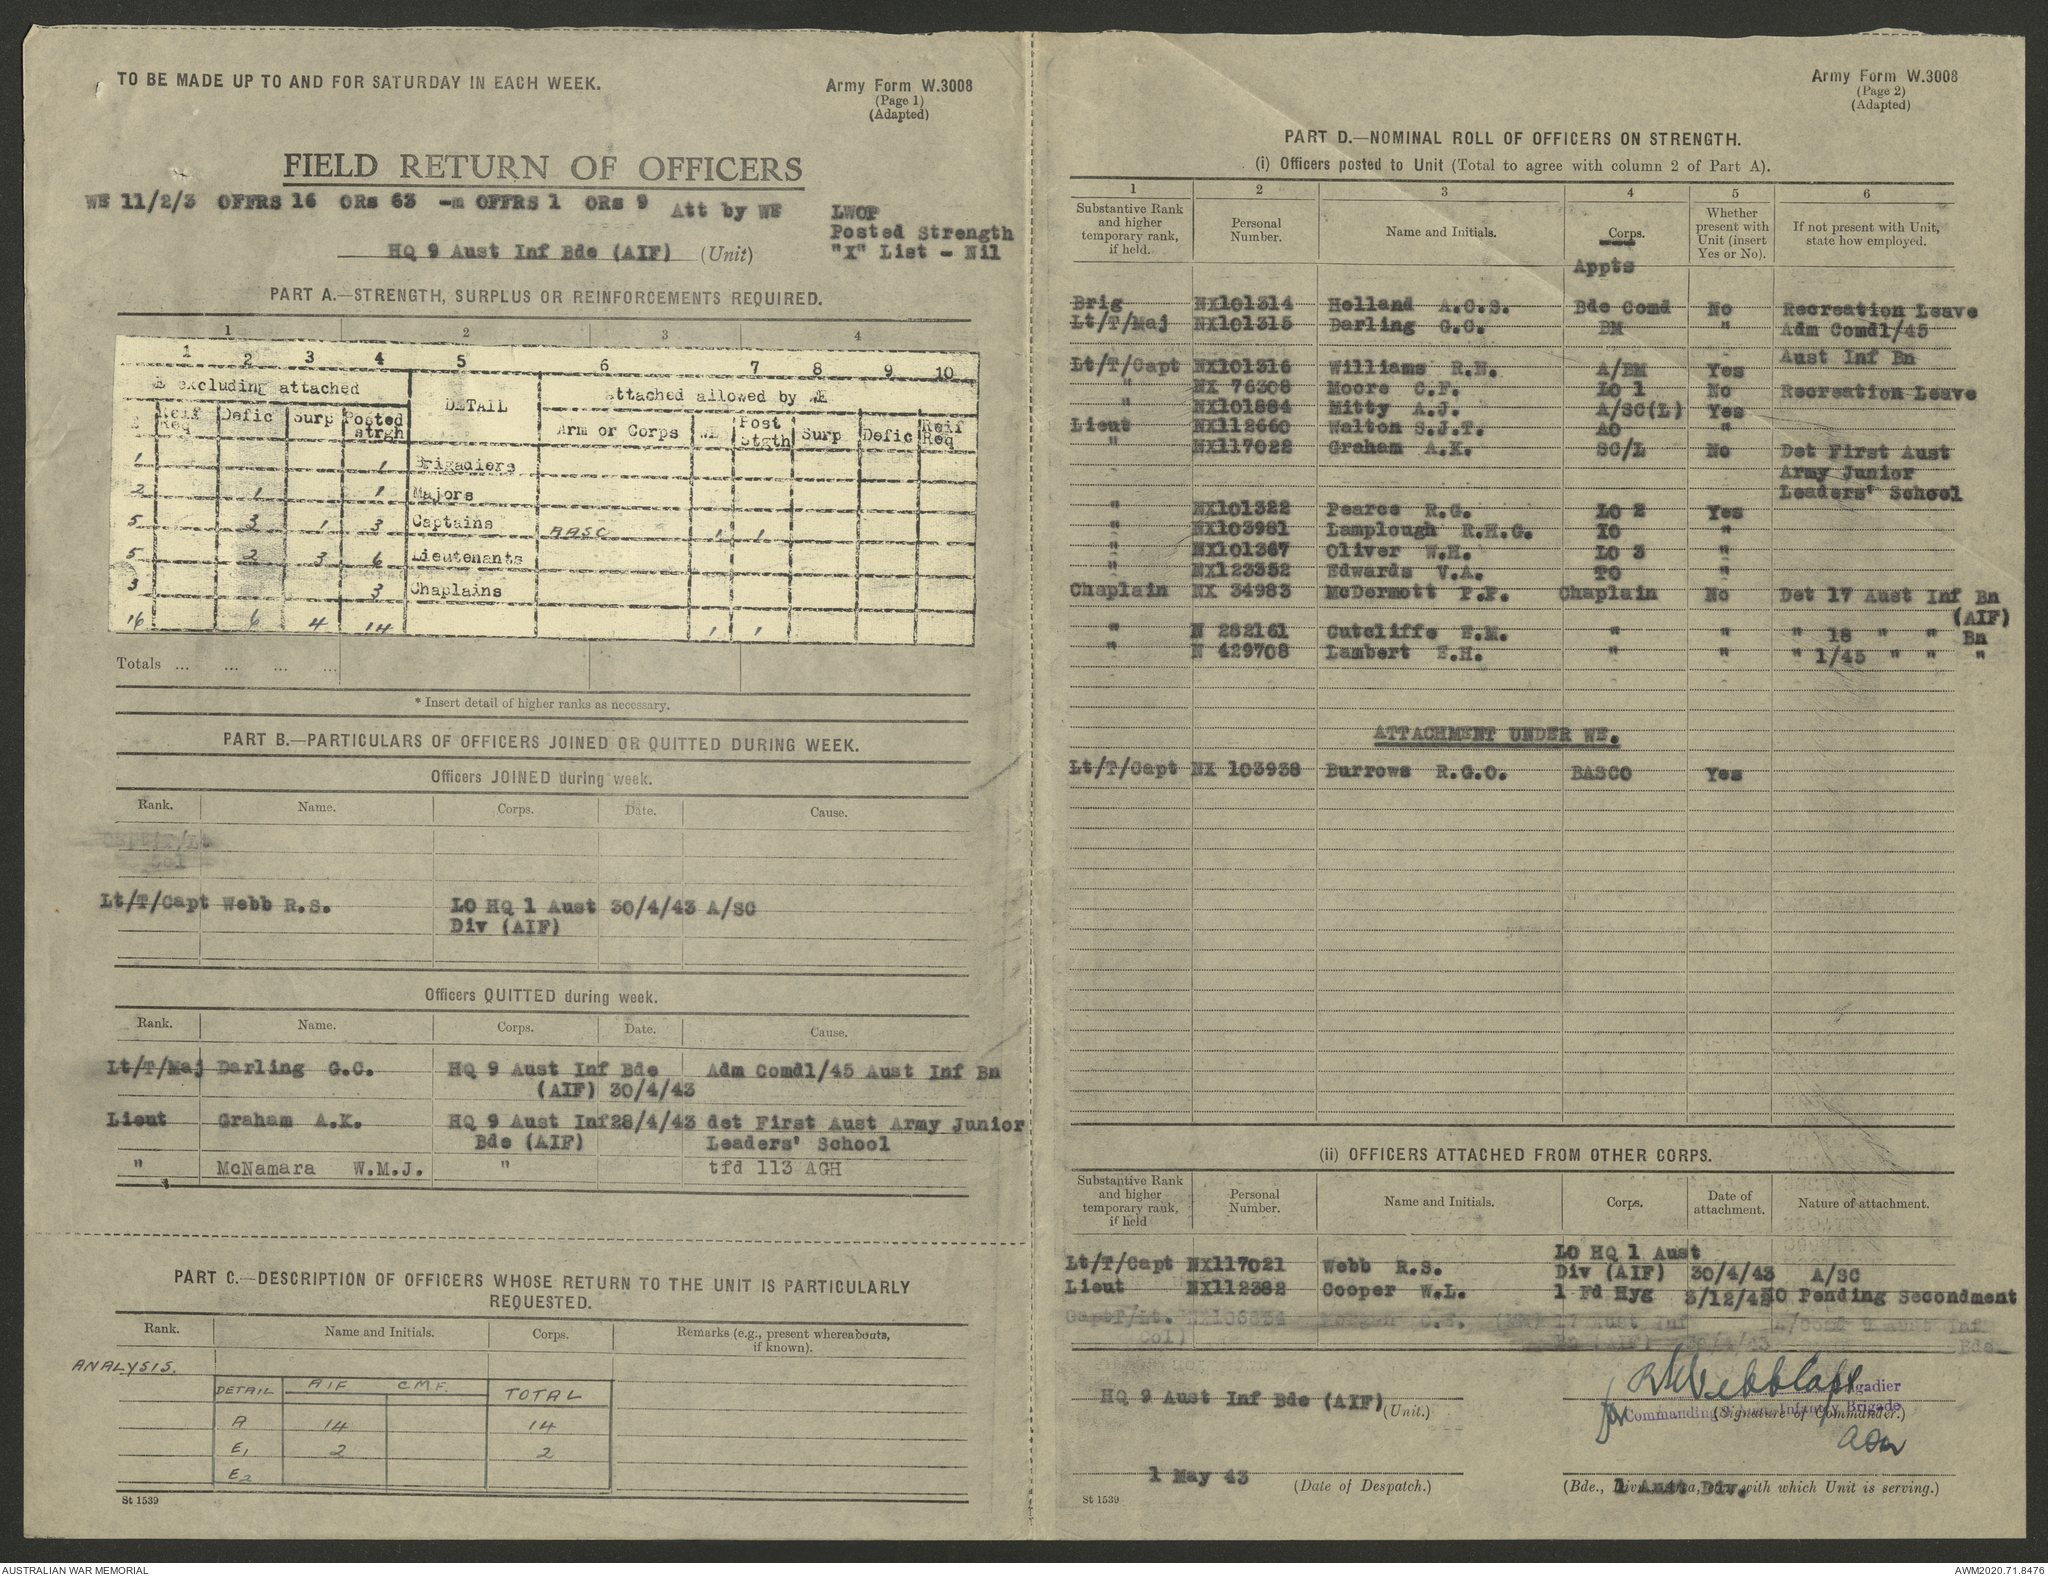 TO BE MADE UP TO AND FOR SATURDAY IN EACH WEEK.
Army Form W.3008
(Page 1)
(Adapted)
FIELD RETURN OF OFFICERS
WE 11/2/3 OFFRS 16 ORs 63 -m OFFRS 1 ORs 9 Att by WE
LWOP
Posted Strength
"X" List - Nil
HQ 9 Aust Inf Bde (AIF) (Unit)
PART A.—STRENGTH, SURPLUS OR REINFORCEMENTS REQUIRED.
1 2 3 4
1 2 3 4 5 6 7 8 9 10
E excluding attached DETAIL attached allowed by WE
Reif Req Defic Surp Posted strgh Arm or Corps WE Post Stgth Surp Defic Reif Req
1 1 Brigadiers
2 1 1 Majors
5 3 1 3 Captains AASC 1 1
5 2 3 6 Lieutenants
3 3 Chaplains
16 6 4 14 1 1
Totals ... ... ... ...
* Insert detail of higher ranks as necessary.
PART B.—PARTICULARS OF OFFICERS JOINED OR QUITTED DURING WEEK.
Officers JOINED during week.
Rank. Name. Corps. Date. Cause.
Lt/T/Capt Webb R.S. LO HQ 1 Aust 30/4/43 A/SC
Div (AIF)
Officers QUITTED during week.
Rank. Name. Corps. Date. Cause.
Lt/T/Maj Darling G.C. HQ 9 Aust Inf Bde Adm Comd1/45 Aust Inf Bn
(AIF) 30/4/43
Lieut Graham A.K. HQ 9 Aust Inf 28/4/43 det First Aust Army Junior
Bde (AIF) Leaders' School
" McNamara W.M.J. " tfd 113 AGH
PART C.—DESCRIPTION OF OFFICERS WHOSE RETURN TO THE UNIT IS PARTICULARLY
REQUESTED.
Rank. Name and Initials. Corps. Remarks (e.g., present whereabouts,
if known).
ANALYSIS.
DETAIL AIF CMF. TOTAL
A 14 14
E1 2 2
E2
St 1539
Army Form W.3008
(Page 2)
(Adapted)
PART D.—NOMINAL ROLL OF OFFICERS ON STRENGTH.
(i) Officers posted to Unit (Total to agree with column 2 of Part A).
1 2 3 4 5 6
Substantive Rank and higher temporary rank, if held. Personal Number. Name and Initials. Corps. Whether present with Unit (insert Yes or No). If not present with Unit, state how employed.
Appts
Brig NX101314 Holland A.C.S. Bde Comd No Recreation Leave
Lt/T/Maj NX101315 Darling G.C. BM " Adm Comd1/45
Aust Inf Bn
Lt/T/Capt NX101316 Williams R.N. A/BM Yes
" NX 76308 Moore C.F. LO 1 No Recreation Leave
" NX101884 Mitty A.J. A/SC(L) Yes
Lieut NX112660 Walton S.J.T. AO "
" NX117022 Graham A.K. SC/L No Det First Aust
Army Junior
Leaders' School
" NX101322 Pearce R.G. LO 2 Yes
" NX103981 Lamplough R.H.G. IO "
" NX101367 Oliver W.H. LO 3 "
" NX123352 Edwards V.A. TO "
Chaplain NX 34983 McDermott P.F. Chaplain No Det 17 Aust Inf Bn
(AIF)
" N 282161 Cutcliffe E.M. " " " 18 " " Bn
" N 429708 Lambert E.H. " " " 1/45 " " "
ATTACHMENT UNDER WE.
Lt/T/Capt NX 103938 Burrows R.G.O. BASCO Yes
(ii) OFFICERS ATTACHED FROM OTHER CORPS.
Substantive Rank and higher temporary rank, if held Personal Number. Name and Initials. Corps. Date of attachment. Nature of attachment.
LO HQ 1 Aust
Lt/T/Capt NX117021 Webb R.S. Div (AIF) 30/4/43 A/SC
Lieut NX112382 Cooper W.L. 1 Fd Hyg 3/12/42 Pending Secondment
HQ 9 Aust Inf Bde (AIF) (Unit.)
Webb Capt
Brigadier
for Commanding 9 Aust. Infantry Brigade
(Signature of Commander.)
1 May 43 (Date of Despatch.)
1 Aust Div.
(Bde., Div., Area, etc., with which Unit is serving.)
St 1539
AUSTRALIAN WAR MEMORIAL
AWM2020.71.8476